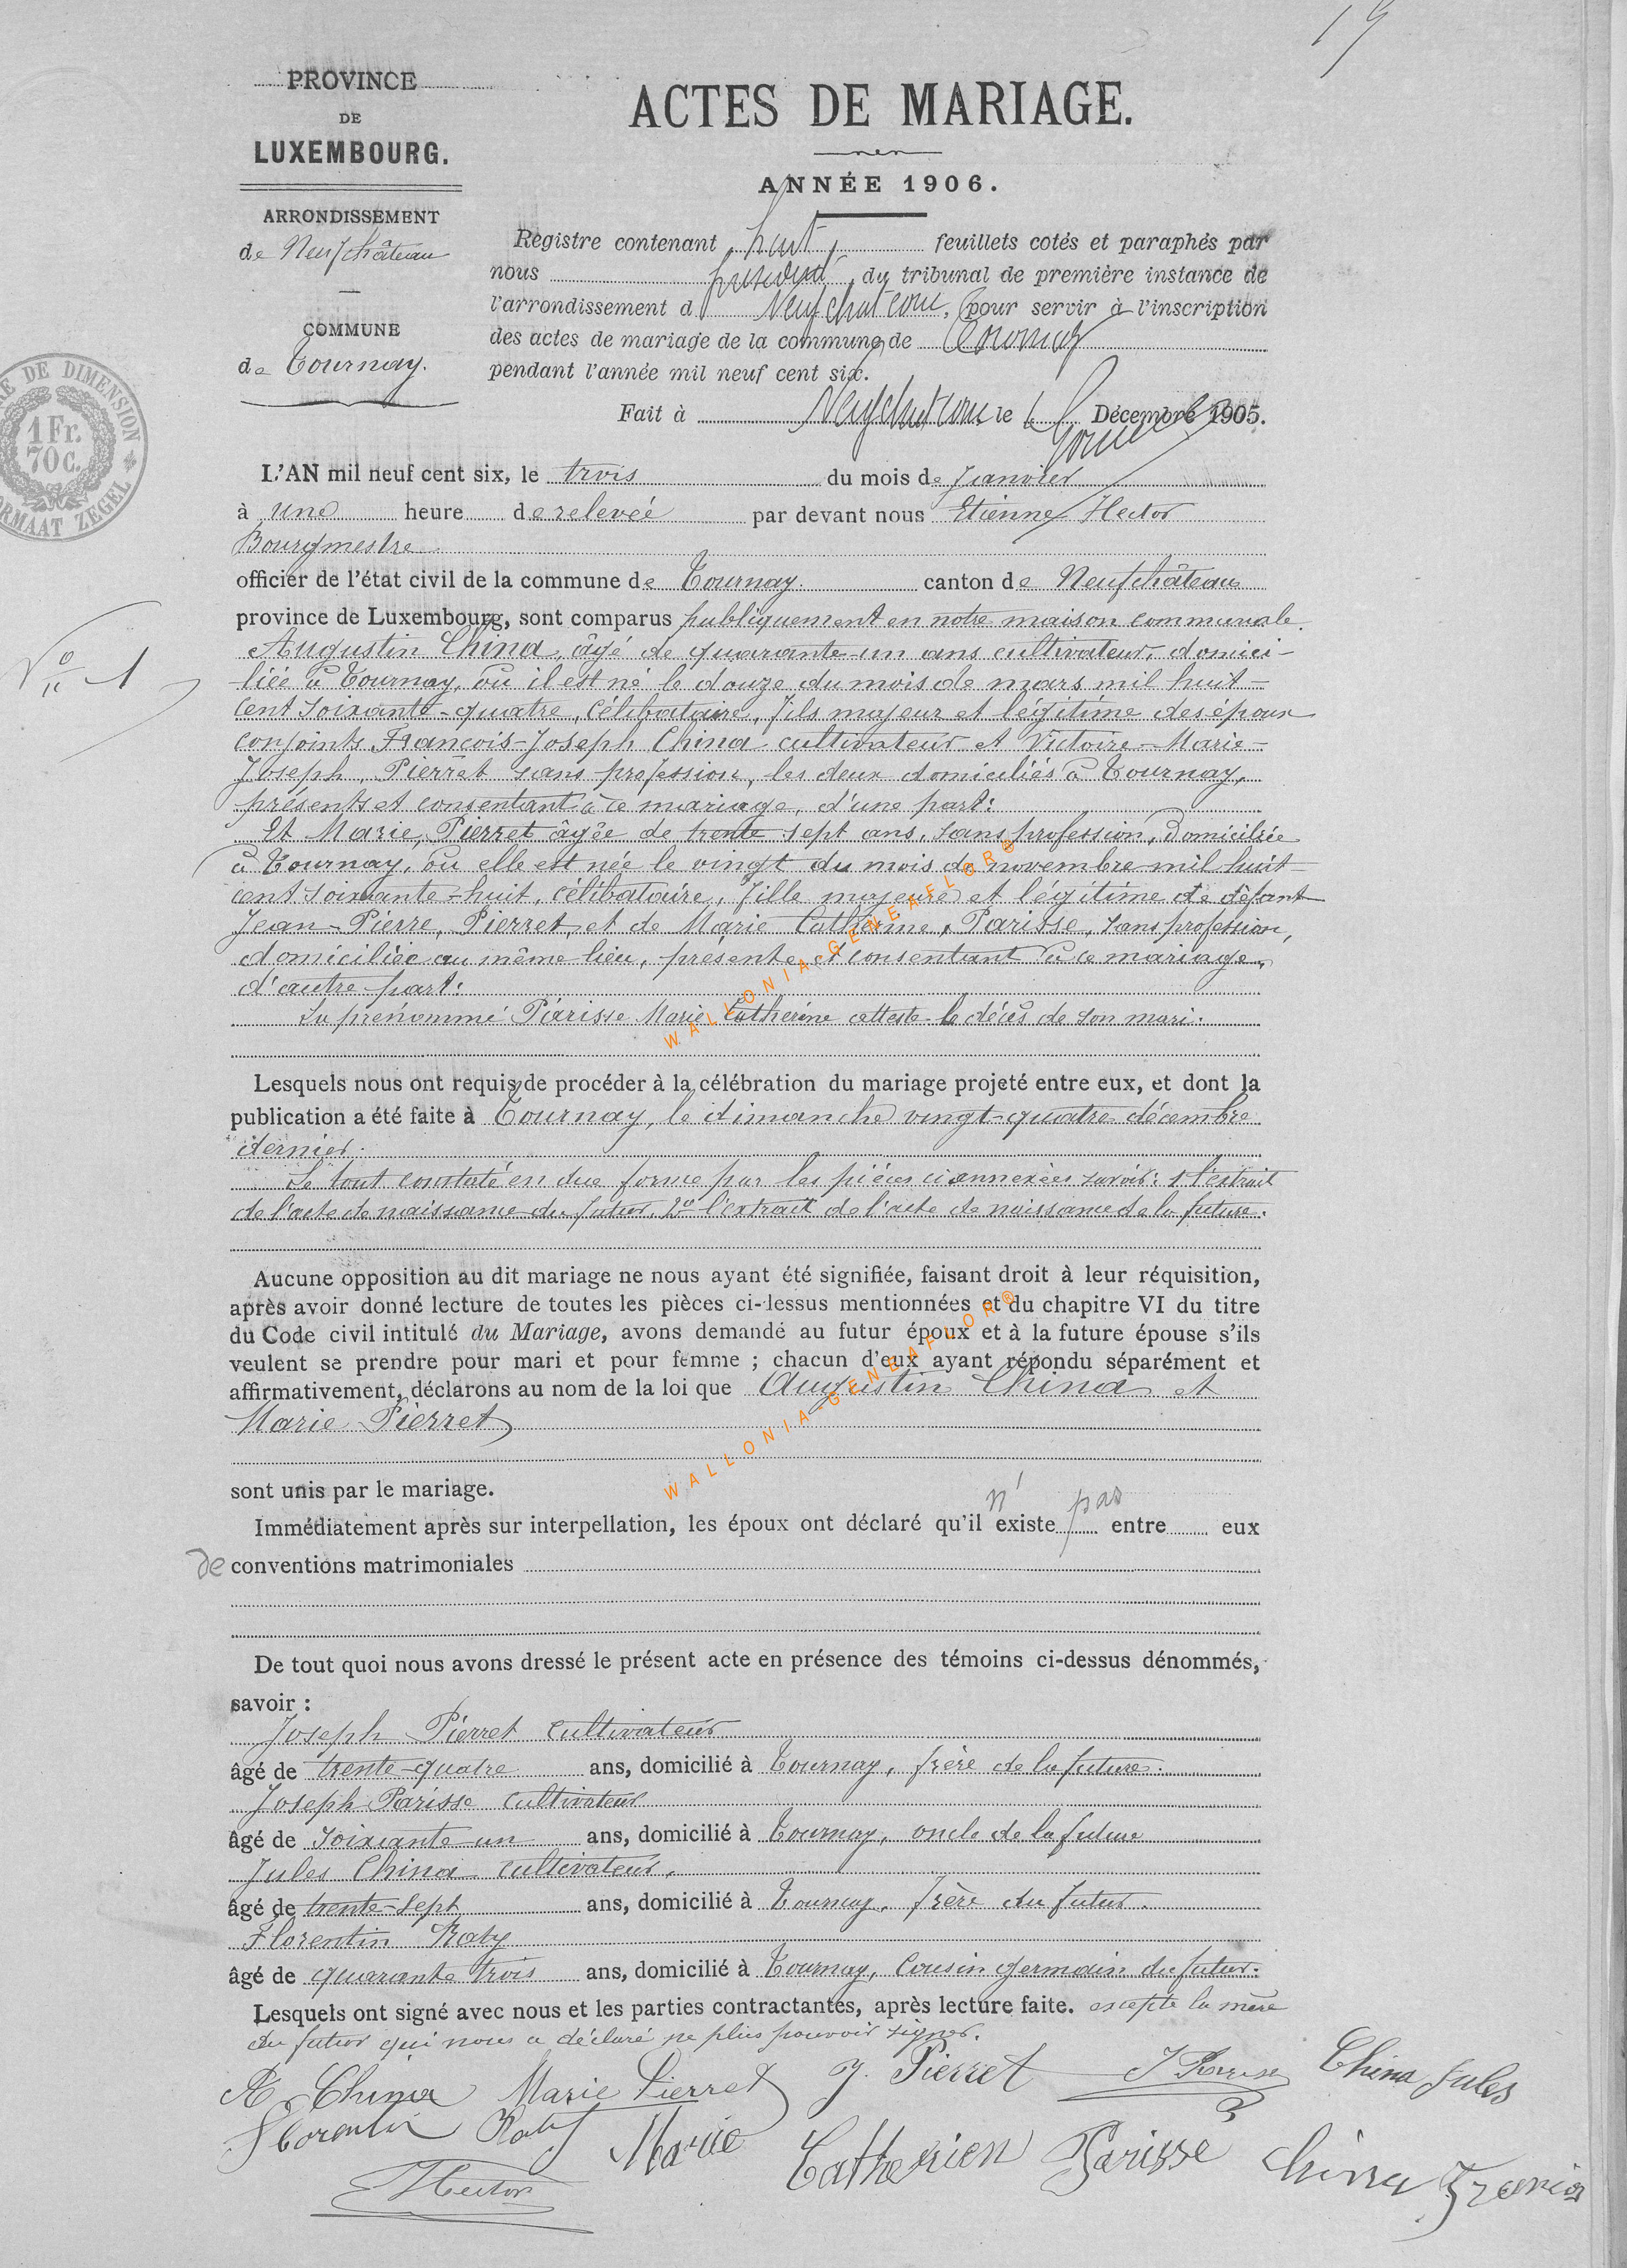 PROVINCE
DE
LUXEMBOURG.
ARRONDISSEMENT
de Neufchâteau
COMMUNE
de Tournay.
ACTES DE MARIAGE.
ANNÉE 1906.
Registre contenant huit feuillets cotés et paraphés par
nous président du tribunal de première instance de
l'arrondissement d Neufchateau, pour servir à l'inscription
des actes de mariage de la commune de Tournay
pendant l'année mil neuf cent six.
Fait à Neufchateau le Décembre 1905.
DE DIMENSION
1 Fr.
70 C.
FORMAAT ZEGEL
No 1
L'AN mil neuf cent six, le trois du mois de Janvier
à une heure de relevée par devant nous Etienne Hector
Bourgmestre
officier de l'état civil de la commune de Tournay. canton de Neufchâteau
province de Luxembourg, sont comparus publiquement en notre maison communale.
Augustin China, âgé de quarante-un ans cultivateur, domici-
liée à Tournay, où il est né le douze du mois de mars mil huit-
cent soixante-quatre, célibataire, fils majeur et légitime des époux
conjoints François-Joseph China cultivateur et Victoire-Marie-
Joseph, Pierret sans profession, les deux domiciliés à Tournay,
présents et consentant à ce mariage, d'une part:
Et Marie, Pierret âgée de trente sept ans, sans profession, Domiciliée
à Tournay, où elle est née le vingt du mois de novembre mil huit-
cent soixante-huit, célibataire, fille majeure et légitime de défunt
Jean-Pierre, Pierret, et de Marie Catherine, Parisse, sans profession,
domiciliée au même lieu, présente et consentant à ce mariage,
d'autre part:
La prénommé Parisse Marie Catherine atteste le décès de son mari.
WALLONIA-GENEAFLOR®
Lesquels nous ont requis de procéder à la célébration du mariage projeté entre eux, et dont la
publication a été faite à Tournay, le dimanche vingt-quatre décembre
dernier.
Le tout constaté en due forme par les pièces ci annexées savoir: 1° l'extrait
de l'acte de naissance du futur, 2° l'extrait de l'acte de naissance de la future.
Aucune opposition au dit mariage ne nous ayant été signifiée, faisant droit à leur réquisition,
après avoir donné lecture de toutes les pièces ci-dessus mentionnées et du chapitre VI du titre
du Code civil intitulé du Mariage, avons demandé au futur époux et à la future épouse s'ils
veulent se prendre pour mari et pour femme ; chacun d'eux ayant répondu séparément et
affirmativement, déclarons au nom de la loi que Augustin China et
Marie Pierret
WALLONIA-GENEAFLOR®
sont unis par le mariage.
Immédiatement après sur interpellation, les époux ont déclaré qu'il n'existe pas entre eux
de conventions matrimoniales
De tout quoi nous avons dressé le présent acte en présence des témoins ci-dessus dénommés,
savoir :
Joseph Pierret cultivateur
âgé de trente-quatre ans, domicilié à Tournay, frère de la future.
Joseph Parisse cultivateur
âgé de soixante-un ans, domicilié à Tournay, oncle de la future
Jules China cultivateur,
âgé de trente-sept ans, domicilié à Tournay, frère du futur.
Florentin Raty
âgé de quarante trois ans, domicilié à Tournay, Cousin germain du futur.
Lesquels ont signé avec nous et les parties contractantes, après lecture faite. excepte la mère
du futur qui nous a déclaré ne plus pouvoir signer.
A China Marie Pierret J. Pierret J Parisse China Jules
Florentin Raty Marie Catherien Parisse China
Hector